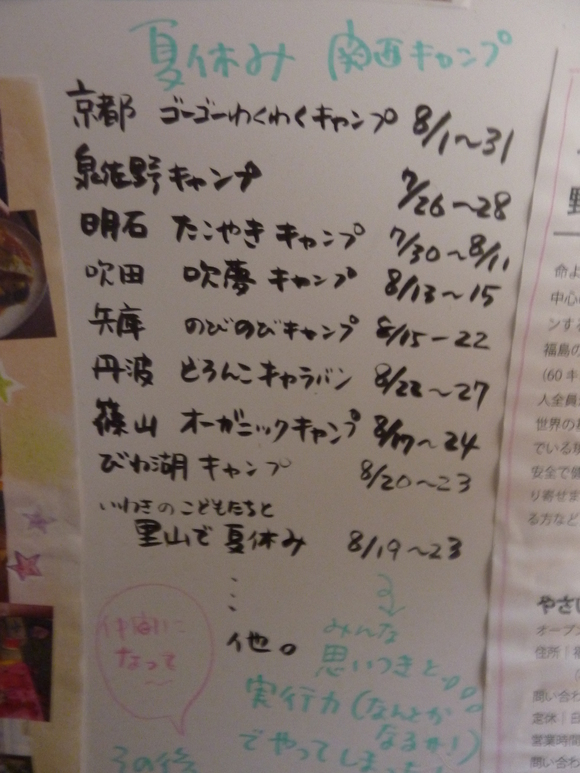 夏休み 関西キャンプ
京都 ゴーゴーわくわくキャンプ 8/1〜31
泉佐野キャンプ 7/26〜28
明石 たこやきキャンプ 7/30〜8/11
吹田 吹夢キャンプ 8/13〜15
兵庫 のびのびキャンプ 8/15-22
丹波 どろんこキャラバン 8/22〜27
篠山 オーガニックキャンプ 8/17〜24
びわ湖キャンプ 8/20〜23
いわきのこどもたちと
里山で夏休み 8/19〜23
他。
仲間に
なって
〜
みんな
思いつきと、
実行力(なんとか
なるか!)
でやってしまった
その後
野
命よ
中心の
ンする
福島の
(60キ
人全員
世界の
でいる
安全で健
り寄せま
る方など
やさい
オープ
住所|福
問い合わ
定休|日
営業時間
問い合わ